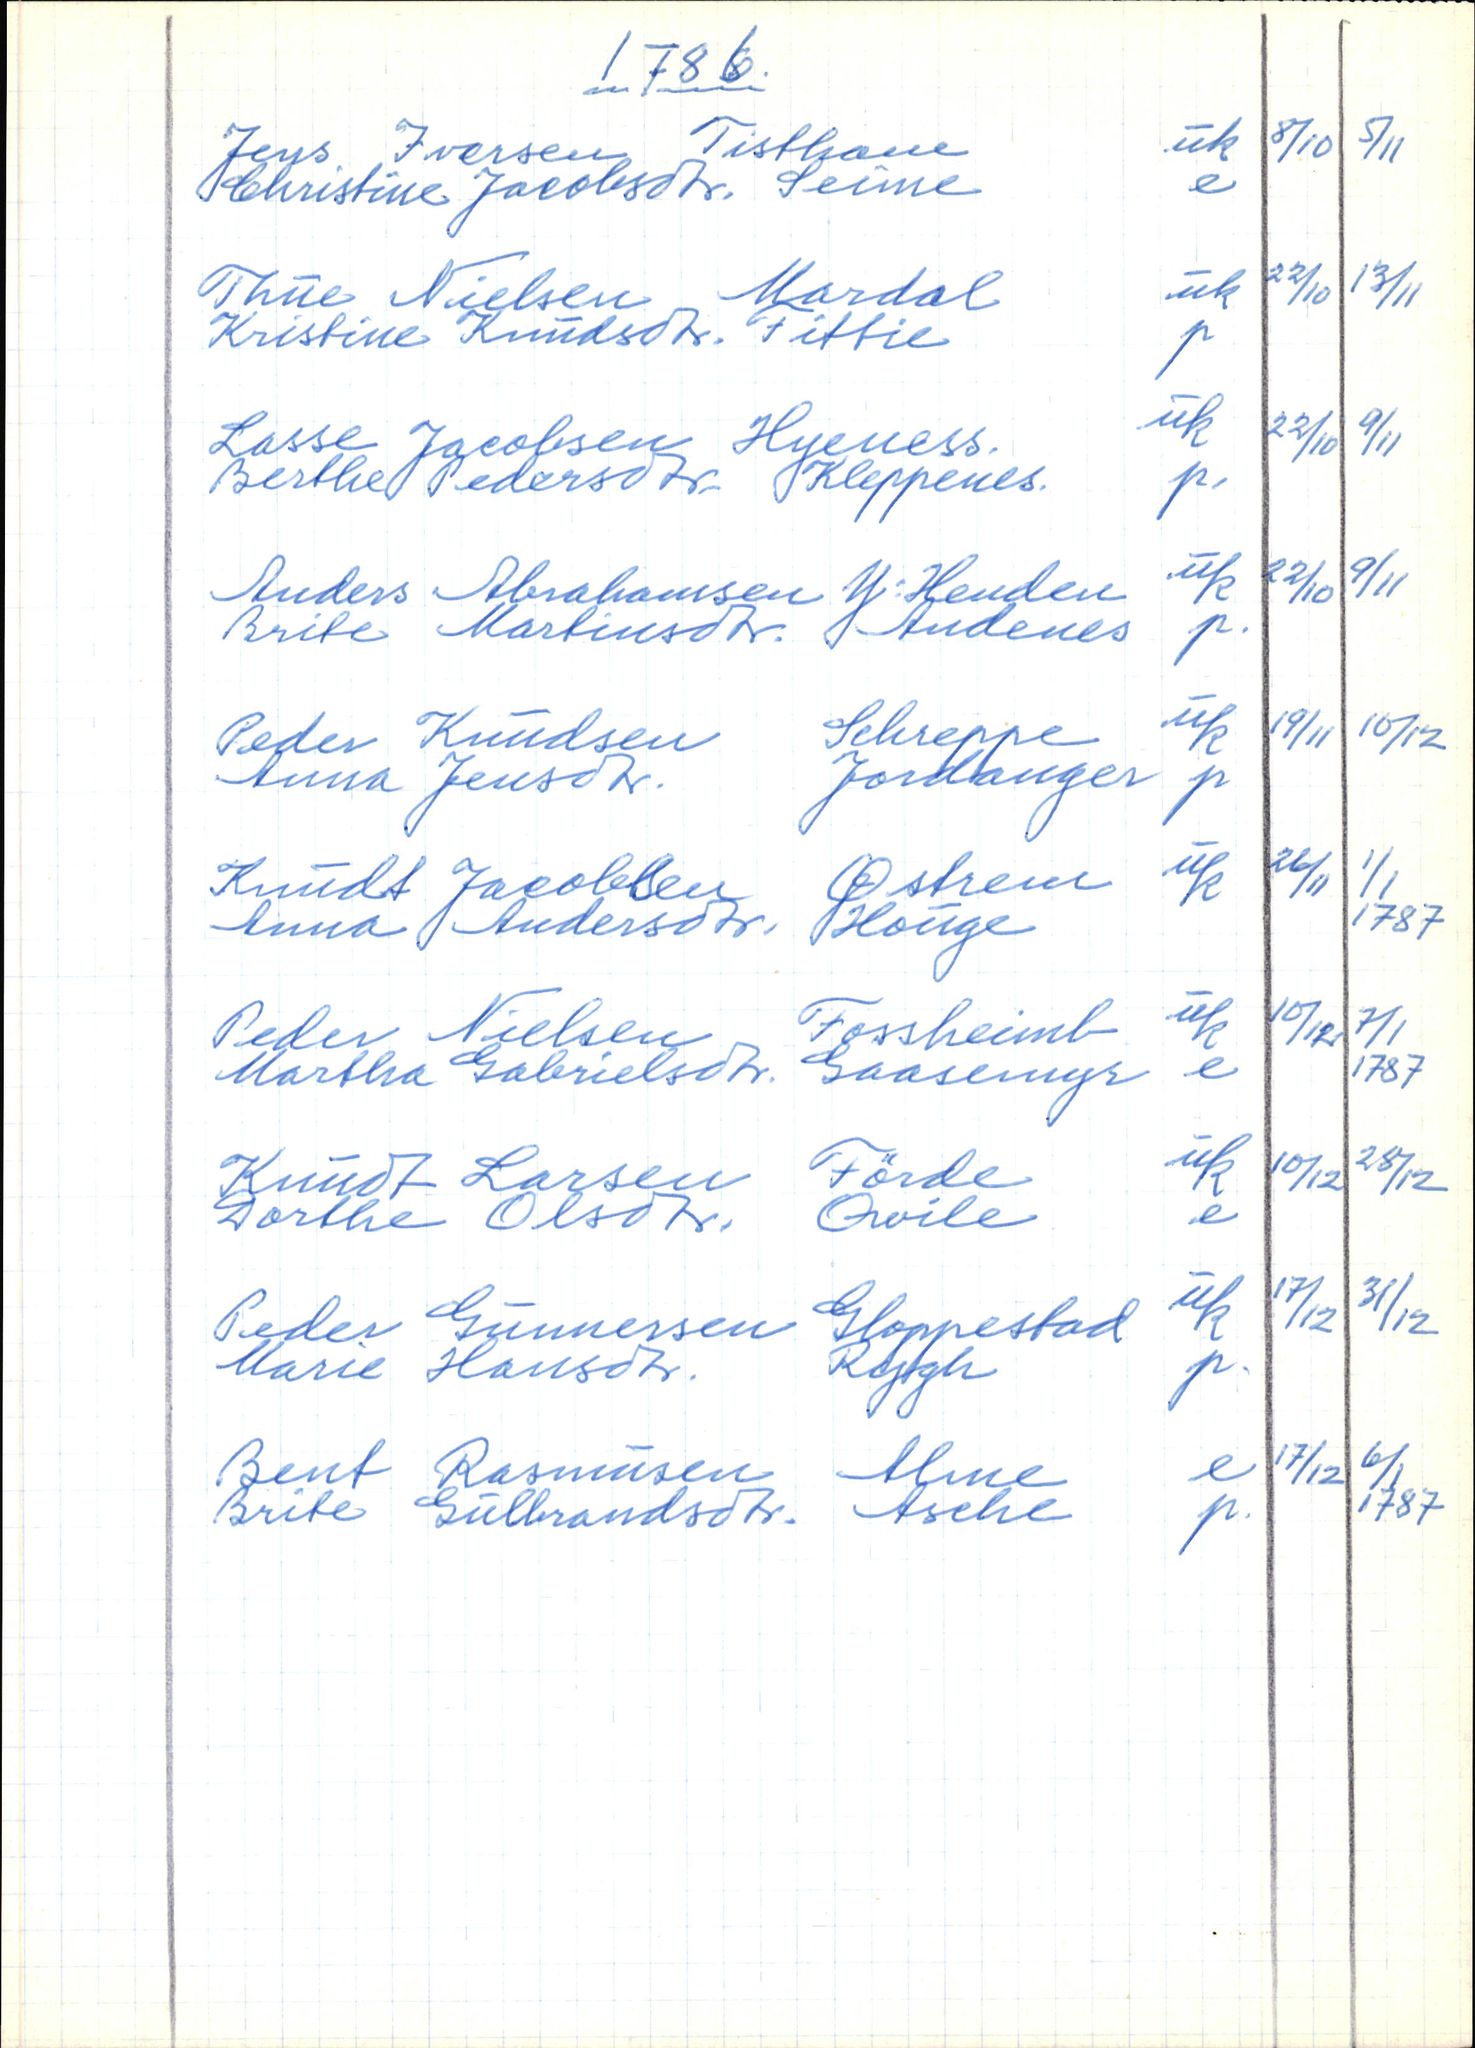 1786.
Jens Iversen Tisthane ük 8/10 5/11
Christine Jacobsdtr. Seime e
Thüe Nielsen Mardal ük 22/10 13/11
Kristine Knüdsdtr. Fittie p
Lasse Jacobsen Hyeness. ük 22/10 9/11
Berthe Pedersdtr. Kleppenes. p.
Anders Abrahamsen Y: Henden ük 22/10 9/11
Brite Martinsdtr. Andenes p.
Peder Knüdsen Schreppe ük 19/11 10/12
Anna Jensdtr. Jordanger p
Knüdt Jacobsen Østrem ük 26/11 1/1
Anna Andersdtr. Houge 1787
Peder Nielsen Fossheimb ük 10/12 7/1
Martha Gabrielsdtr. Gaasemyr e 1787
Knüdt Larsen Förde ük 10/12 28/12
Dorthe Olsdtr. Qvile e
Peder Günnersen Gloppestad ük 17/12 31/12
Marie Hansdtr. Rygh p.
Bent Rasmüsen Alme e 17/12 6/1
Brite Gülbrandsdtr. Asche p. 1787